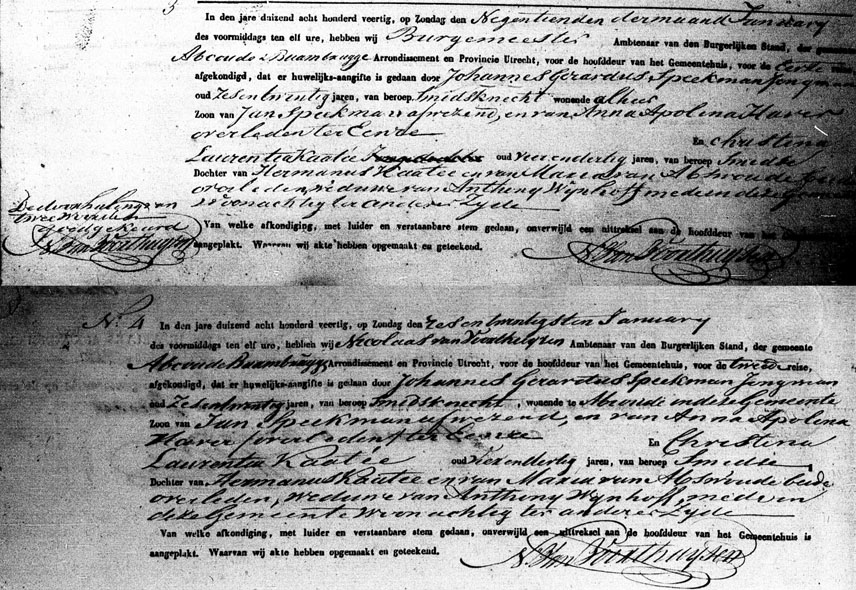 In den jare duizend acht honderd veertig, op Zondag den Negentienden der maand January
des voormiddags ten elf ure, hebben wij Burgemeester Ambtenaar van den Burgerlijken Stand, der gemeente
Abcoude & Baambrugge Arrondissement en Provincie Utrecht, voor de hoofddeur van het Gemeentehuis, voor de Eerste
afgekondigd, dat er huwelijks-aangifte is gedaan door Johannes Gerardus Speekman Jongman
oud Zesentwintig jaren, van beroep Smidsknecht wonende alhier
Zoon van Jan Speekman afwezend, en van Anna Apolena Haver
overleden ter Eenre
En Christina
Laurentia Kaatée oud vierendertig jaren, van beroep Smidse
Dochter van Hermanus Kaatee en van Maria van Abswoude
overleden, weduwe van Anthony Wynhoff mede in deze
Woonachtig ter anderer Zyde
De doorhaling van
twee woorden
goedgekeurd
N Van Voorthuysen
Van welke afkondiging, met luider en verstaanbare stem gedaan, onverwijld een uittreksel aan de hoofddeur van het
aangeplakt. Waarvan wij akte hebben opgemaakt en geteekend.
N. Van Voorthuysen
No. 4
In den jare duizend acht honderd veertig, op Zondag den zes en twintigsten January
des voormiddags ten elf ure, hebben wij Nicolaas van Voorthuyzen Ambtenaar van den Burgerlijken Stand, der gemeente
Abcoude Baambrugge Arrondissement en Provincie Utrecht, voor de hoofddeur van het Gemeentehuis, voor de tweede reise,
afgekondigd, dat er huwelijks-aangifte is gedaan door Johannes Gerardus Speekman Jongman
oud Zesentwintig jaren, van beroep Smidsknecht, wonende te Abcoude in deze Gemeente
Zoon van Jan Speekman afwezend, en van Anna Apolena
Haver overleden ter Eenre
En Christina
Laurentia Kaatée oud vierendertig jaren, van beroep Smidse
Dochter van Hermanus Kaatee en van Maria van Abswoude beide
overleden, weduwe van Anthony Wynhoff, mede in
deze Gemeente Woonachtig ter anderer Zyde
Van welke afkondiging, met luider en verstaanbare stem gedaan, onverwijld een uittreksel aan de hoofddeur van het Gemeentehuis is
aangeplakt. Waarvan wij akte hebben opgemaakt en geteekend.
N. Van Voorthuysen